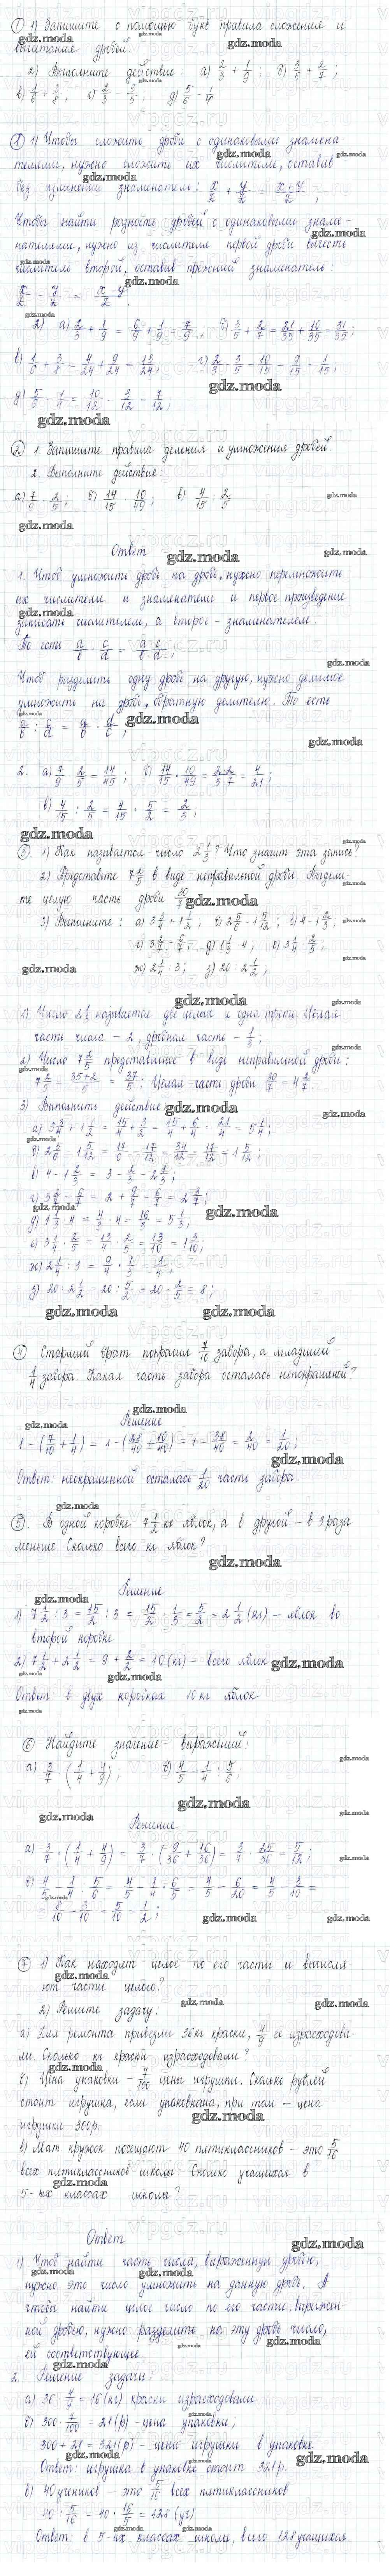 ① 1) Запишите с помощью букв правила сложения и
вычитания дробей.
2) Выполните действие: а) 2/3 + 1/9; б) 3/5 + 2/7;
в) 1/6 + 3/8; г) 2/3 − 3/5; д) 5/6 − 1/4
① 1) Чтобы сложить дроби с одинаковыми знамена-
телями, нужно сложить их числители, оставив
без изменений знаменатель: x/z + y/z = x+y/z;
Чтобы найти разность дробей с одинаковыми знаме-
нателями, нужно из числителя первой дроби вычесть
числитель второй, оставив прежний знаменатель:
x/z − y/z = x−y/z.
2) а) 2/3 + 1/9 = 6/9 + 1/9 = 7/9; б) 3/5 + 2/7 = 21/35 + 10/35 = 31/35;
в) 1/6 + 3/8 = 4/24 + 9/24 = 13/24; г) 2/3 − 3/5 = 10/15 − 9/15 = 1/15;
д) 5/6 − 1/4 = 10/12 − 3/12 = 7/12;
② 1. Запишите правила деления и умножения дробей.
2. Выполните действие:
а) 7/9 · 2/5; б) 14/15 · 10/49; в) 4/15 : 2/5
Ответ
1. Чтоб умножить дробь на дробь, нужно перемножить
их числители и знаменатели и первое произведение
записать числителем, а второе – знаменателем.
То есть a/b · c/d = a·c/b·d;
Чтоб разделить одну дробь на другую, нужно делимое
умножить на дробь, обратную делителю. То есть
a/b : c/d = a/b · d/c;
2. а) 7/9 · 2/5 = 14/45; б) 14/15 · 10/49 = 2·2/3·7 = 4/21;
в) 4/15 : 2/5 = 4/15 · 5/2 = 2/3;
③ 1) Как называется число 2 1/3? Что значит эта запись?
2) Представьте 7 2/5 в виде неправильной дроби. Выдели-
те целую часть дроби 30/7
3) Выполните: а) 3 3/4 + 1 1/2; б) 2 5/6 − 1 5/12; в) 4 − 1 2/3;
г) 3 2/7 − 6/7; д) 1 1/3 · 4; е) 3 1/4 · 2/5;
ж) 2 1/4 : 3; з) 20 : 2 1/2;
1) Число 2 1/3 называется две целых и одна треть. Целая
часть числа – 2, дробная часть – 1/3;
2) Число 7 2/5 представленное в виде неправильной дроби:
7 2/5 = 35+2/5 = 37/5; Целая часть дроби 30/7 = 4 2/7.
3) Выполнить действие
а) 3 3/4 + 1 1/2 = 15/4 + 3/2 = 15/4 + 6/4 = 21/4 = 5 1/4;
б) 2 5/6 − 1 5/12 = 17/6 − 17/12 = 34/12 − 17/12 = 1 5/12;
в) 4 − 1 2/3 = 3 − 2/3 = 2 1/3;
г) 3 2/7 − 6/7 = 2 + 9/7 − 6/7 = 2 3/7;
д) 1 1/3 · 4 = 4/3 · 4 = 16/3 = 5 1/3;
е) 3 1/4 · 2/5 = 13/4 · 2/5 = 13/10 = 1 3/10;
ж) 2 1/4 : 3 = 9/4 · 1/3 = 3/4;
з) 20 : 2 1/2 = 20 : 5/2 = 20 · 2/5 = 8;
④ Старший брат покрасил 7/10 забора, а младший –
1/4 забора. Какая часть забора осталась непокрашеной?
Решение
1 − (7/10 + 1/4) = 1 − (28/40 + 10/40) = 1 − 38/40 = 2/40 = 1/20;
Ответ: неокрашенной осталась 1/20 часть забора.
⑤ В одной коробке 7 1/2 кг яблок, а в другой – в 3 раза
меньше. Сколько всего кг яблок?
Решение
1) 7 1/2 : 3 = 15/2 : 3 = 15/2 · 1/3 = 5/2 = 2 1/2 (кг) – яблок во
второй коробке
2) 7 1/2 + 2 1/2 = 9 + 2/2 = 10 (кг) – всего яблок
Ответ: в двух коробках 10 кг яблок
⑥ Найдите значение выражений:
а) 3/7 · (1/4 + 4/9); б) 4/5 − 1/4 : 5/6;
Решение
а) 3/7 · (1/4 + 4/9) = 3/7 · (9/36 + 16/36) = 3/7 · 25/36 = 5/12;
б) 4/5 − 1/4 : 5/6 = 4/5 − 1/4 · 6/5 = 4/5 − 6/20 = 4/5 − 3/10 =
= 8/10 − 3/10 = 5/10 = 1/2;
⑦ 1) Как находят целое по его части и вычисля-
ют части целого?
2) Решите задачу:
а) Для ремонта привезли 36 кг краски, 4/9 её израсходова-
ли. Сколько кг краски израсходовали?
б) Цена упаковки – 7/100 цены игрушки. Сколько рублей
стоит игрушка, если упакована, при том – цена
игрушки 300р.
в) Мат кружок посещают 40 пятиклассников – это 5/16
всех пятиклассников школы. Сколько учащихся в
5-ых классах школы?
Ответ
1) Чтоб найти часть числа, выраженную дробью,
нужно это число умножить на данную дробь. А
чтобы найти целое число по его части, выражен-
ной дробью, нужно разделить на эту дробь число,
ей соответствующее.
2. Решение задачи:
а) 36 · 4/9 = 16 (кг) краски израсходовали.
б) 300 · 7/100 = 21 (р) – цена упаковки;
300 + 21 = 321 (р) – цена игрушки в упаковке
Ответ: игрушка в упаковке стоит 321р.
в) 40 учеников – это 5/16 всех пятиклассников
40 : 5/16 = 40 · 16/5 = 128 (уч)
Ответ: в 5-ых классах школы, всего 128 учащихся